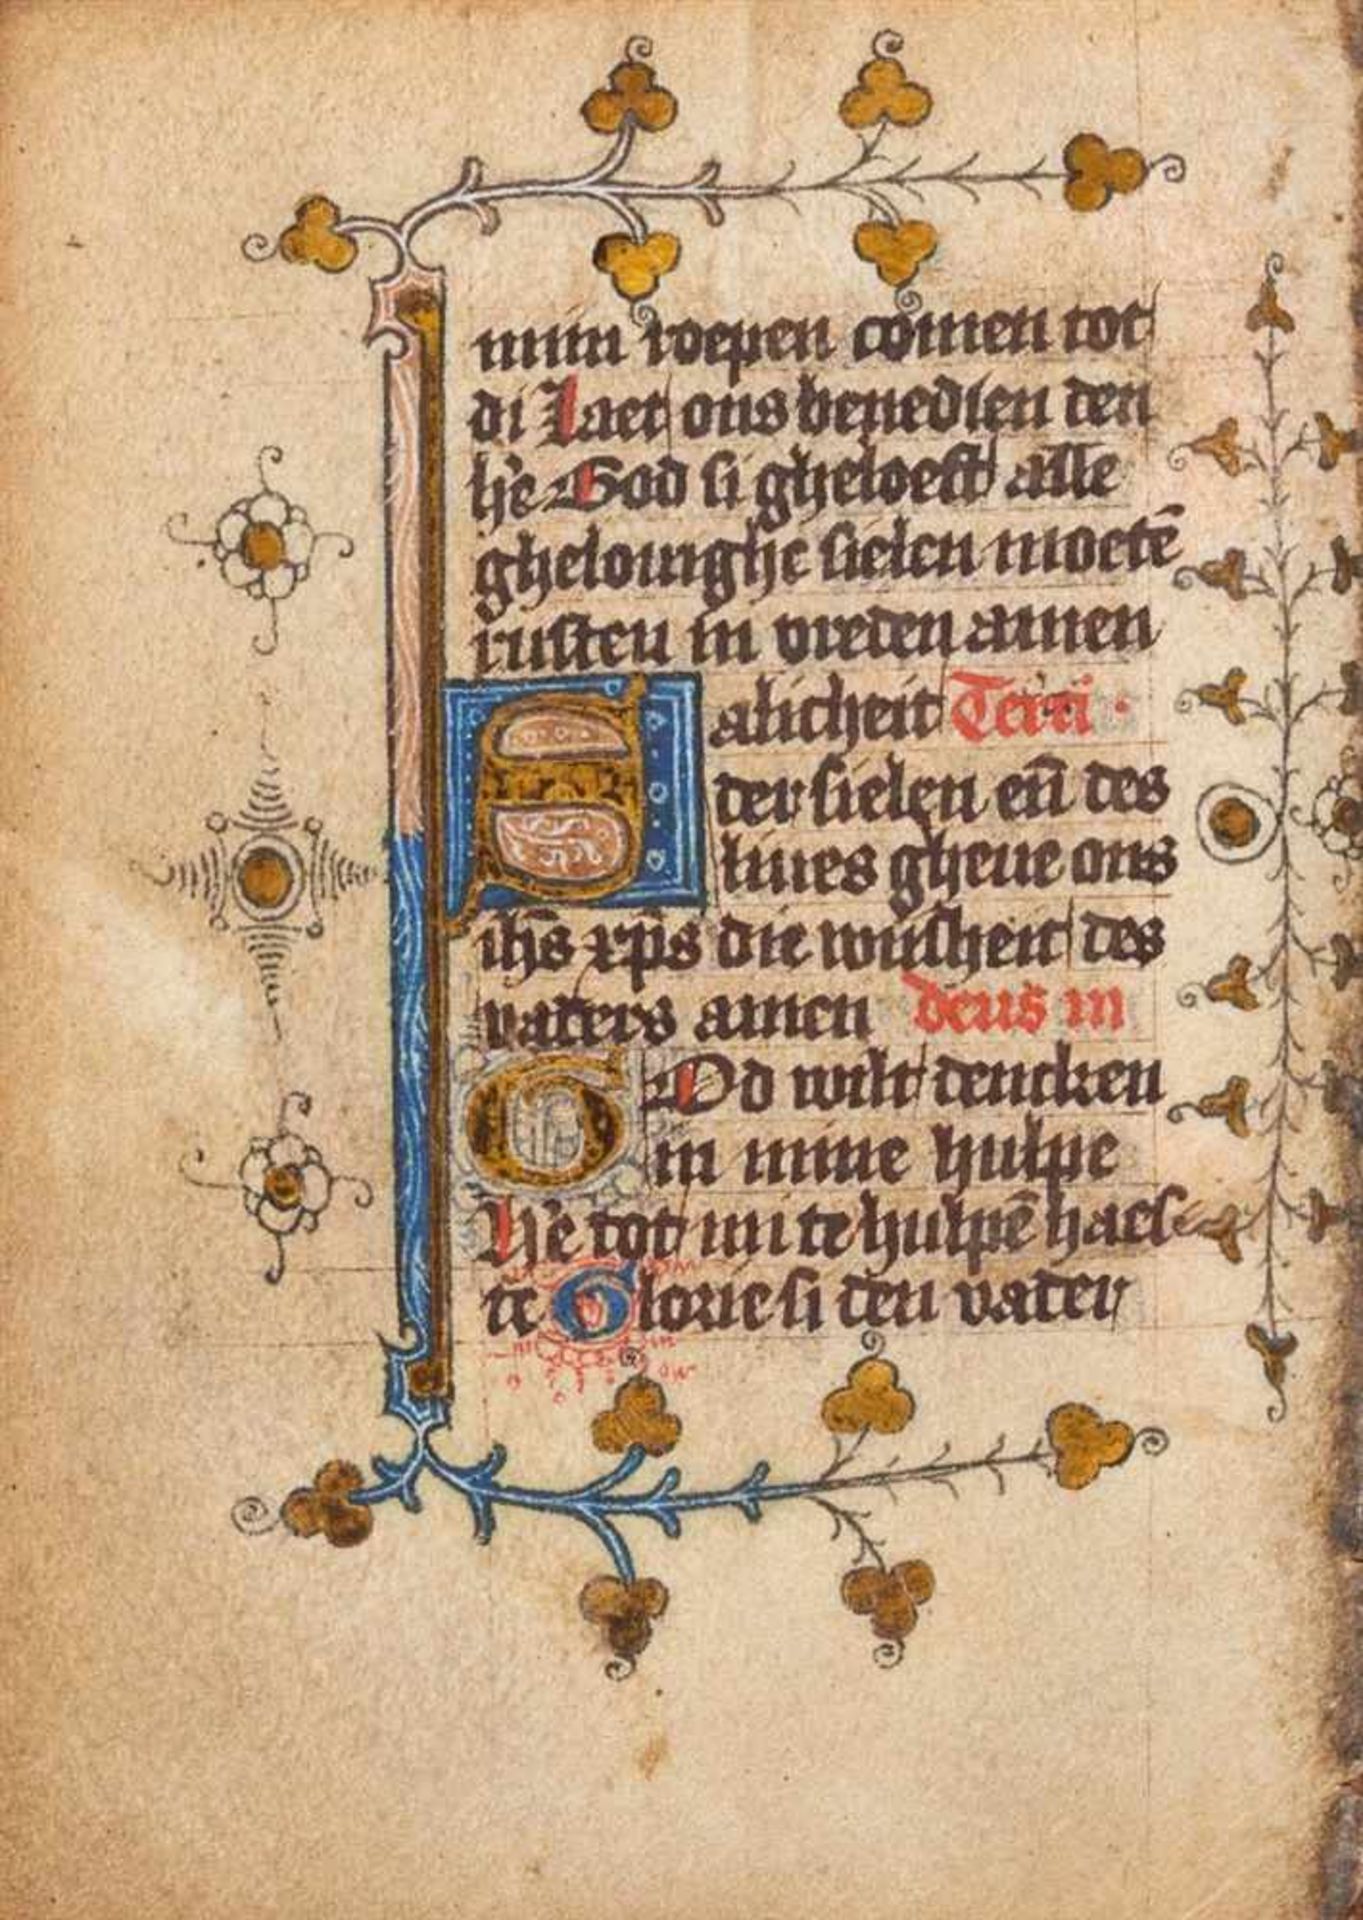 miin roepen comen tot
di Laet ons benedien den
h'e God si gheloeft alle
ghelouighe sielen moetē
rusten in vreden amen
Salicheit Terti ·
der sielen eñ des
liues gheue ons
ihs xps die wijsheit des
vaders amen deus in
GOd wilt dencken
in mine hulpe
H'e tot mi te hulpē haes
te Glorie si den vader